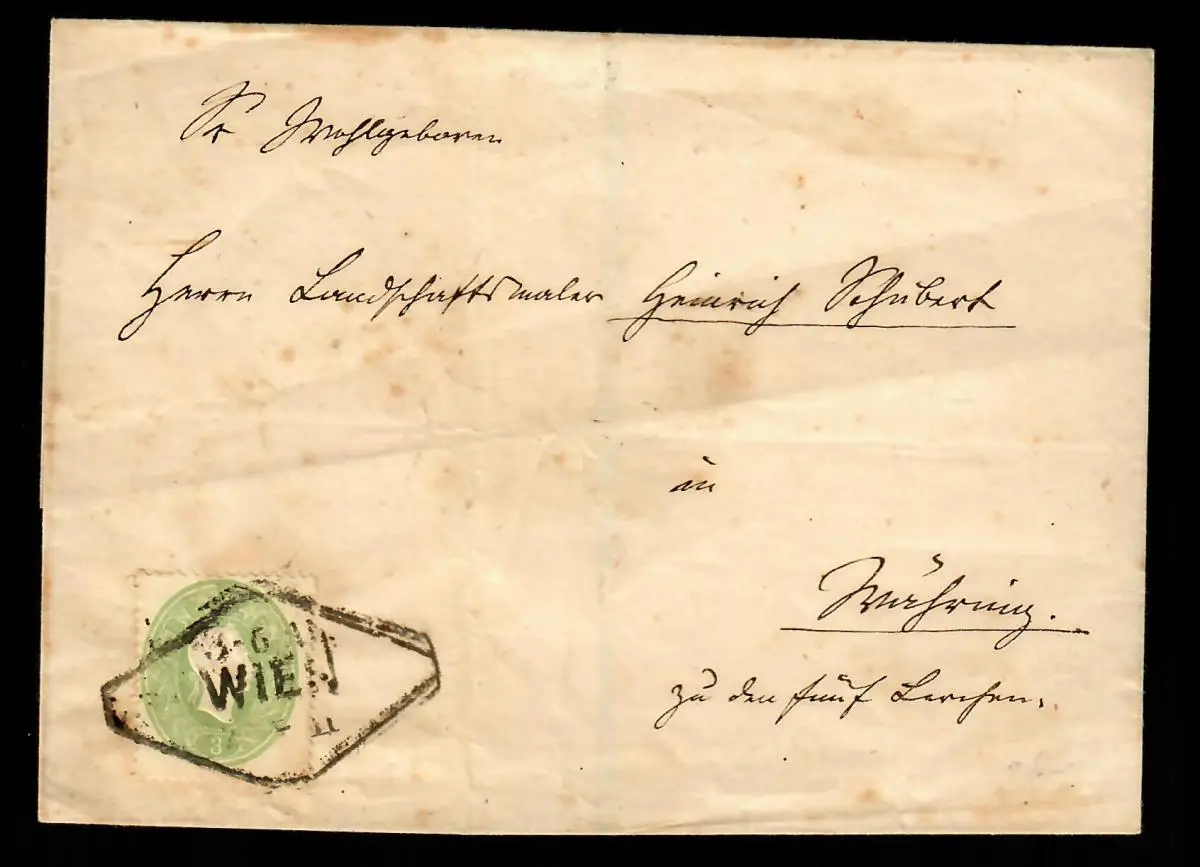 Sr Wohlgeboren
Herrn Landschaftsmaler Heinrich Schubert
in
Währing.
zu den fünf Lerchen.
6
WIEN
3